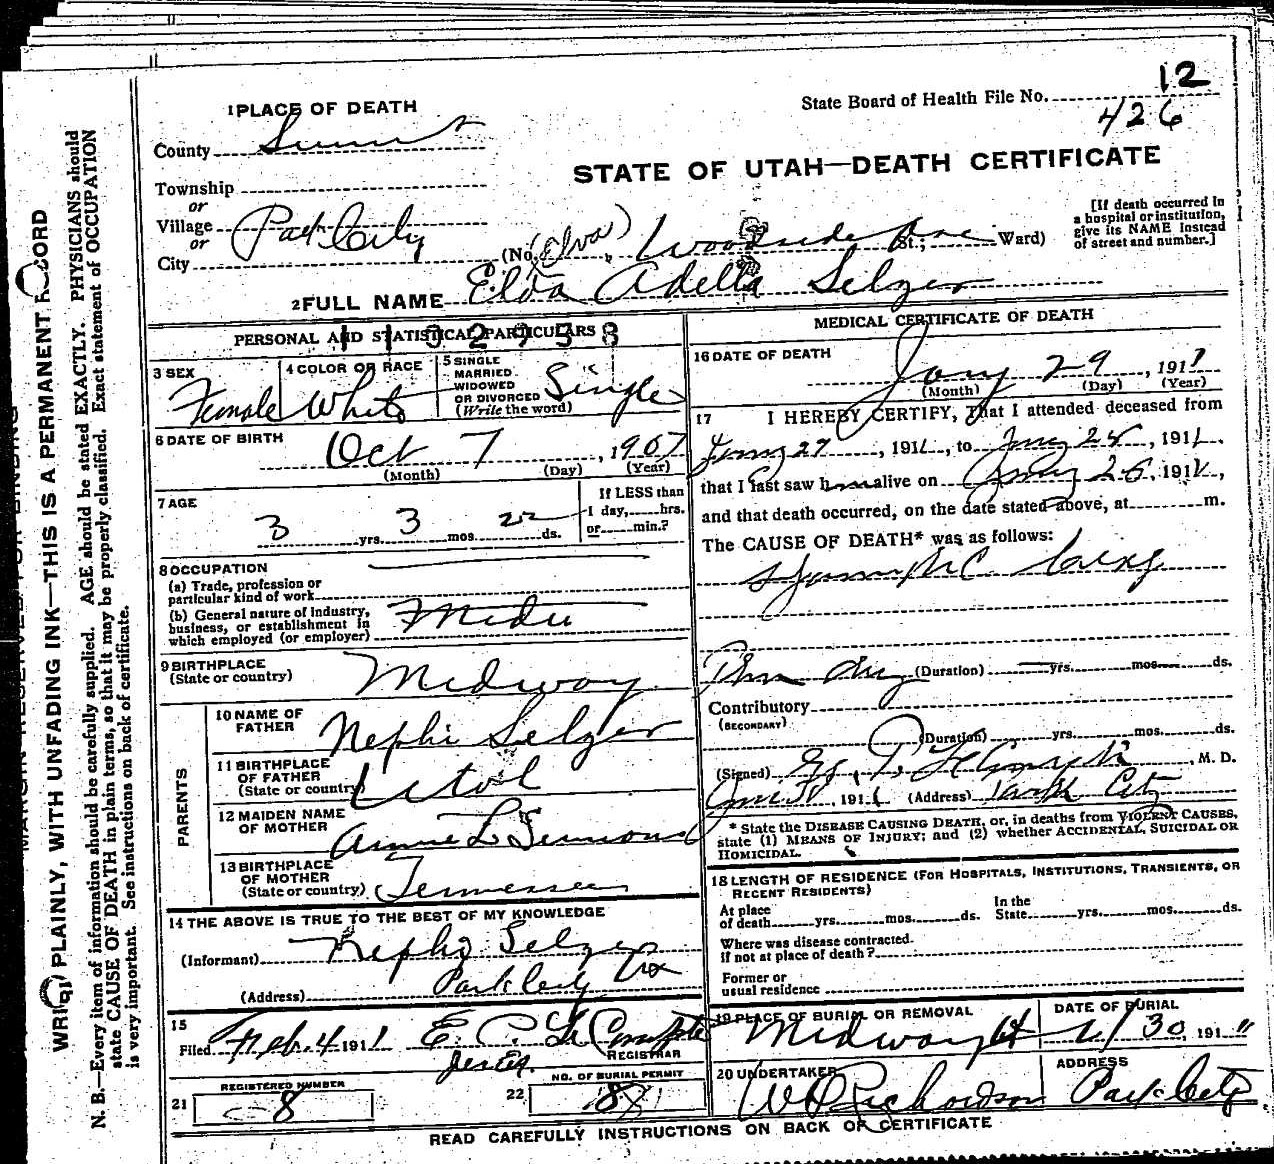 12
State Board of Health File No. 426
1 PLACE OF DEATH
County Summit
STATE OF UTAH—DEATH CERTIFICATE
Township
or
Village
or
City Park City
(No. (Elva), Woodside Ave St.; Ward)
[If death occurred in
a hospital or institution,
give its NAME instead
of street and number.]
2 FULL NAME Elda Adella Selzer
PERSONAL AND STATISTICAL PARTICULARS
3 SEX
Female
4 COLOR OR RACE
White
5 SINGLE
MARRIED
WIDOWED
OR DIVORCED
(Write the word)
Single
6 DATE OF BIRTH
Oct 7, 1907
(Month) (Day) (Year)
7 AGE
3 yrs. 3 mos. 22 ds.
If LESS than
1 day, hrs.
or min.?
8 OCCUPATION
(a) Trade, profession or
particular kind of work
(b) General nature of industry,
business, or establishment in
which employed (or employer)
9 BIRTHPLACE
(State or country)
Midway
PARENTS
10 NAME OF
FATHER
Nephi Selzer
11 BIRTHPLACE
OF FATHER
(State or country)
12 MAIDEN NAME
OF MOTHER
Annie L
13 BIRTHPLACE
OF MOTHER
(State or country) Tennessee
14 THE ABOVE IS TRUE TO THE BEST OF MY KNOWLEDGE
(Informant) Nephi Selzer
(Address) Park City
15
Filed Feb. 4 1911 E. P.
REGISTRAR
REGISTERED NUMBER
21 8
NO. OF BURIAL PERMIT
22 8
MEDICAL CERTIFICATE OF DEATH
16 DATE OF DEATH
Jany 29, 1911
(Month) (Day) (Year)
17 I HEREBY CERTIFY, That I attended deceased from
Jany 27, 1911, to Jany 28, 1911.
that I last saw h alive on Jany 28, 1911,
and that death occurred, on the date stated above, at m.
The CAUSE OF DEATH* was as follows:
(Duration) yrs. mos. ds.
Contributory
(SECONDARY)
(Duration) yrs. mos. ds.
(Signed) M. D.
Jan 30, 1911 (Address) Park City
* State the DISEASE CAUSING DEATH, or, in deaths from VIOLENT CAUSES,
state (1) MEANS OF INJURY; and (2) whether ACCIDENTAL, SUICIDAL OR
HOMICIDAL.
18 LENGTH OF RESIDENCE (FOR HOSPITALS, INSTITUTIONS, TRANSIENTS, OR
RECENT RESIDENTS)
At place
of death yrs. mos. ds.
In the
State yrs. mos. ds.
Where was disease contracted.
if not at place of death?
Former or
usual residence
19 PLACE OF BURIAL OR REMOVAL
Midway Ut
DATE OF BURIAL
1/30, 1911
20 UNDERTAKER
W D Richardson
ADDRESS
Park City
READ CAREFULLY INSTRUCTIONS ON BACK OF CERTIFICATE
WRITE PLAINLY, WITH UNFADING INK—THIS IS A PERMANENT RECORD
N. B.—Every item of information should be carefully supplied. AGE should be stated EXACTLY. PHYSICIANS should
state CAUSE OF DEATH in plain terms, so that it may be properly classified. Exact statement of OCCUPATION
is very important. See instructions on back of certificate.